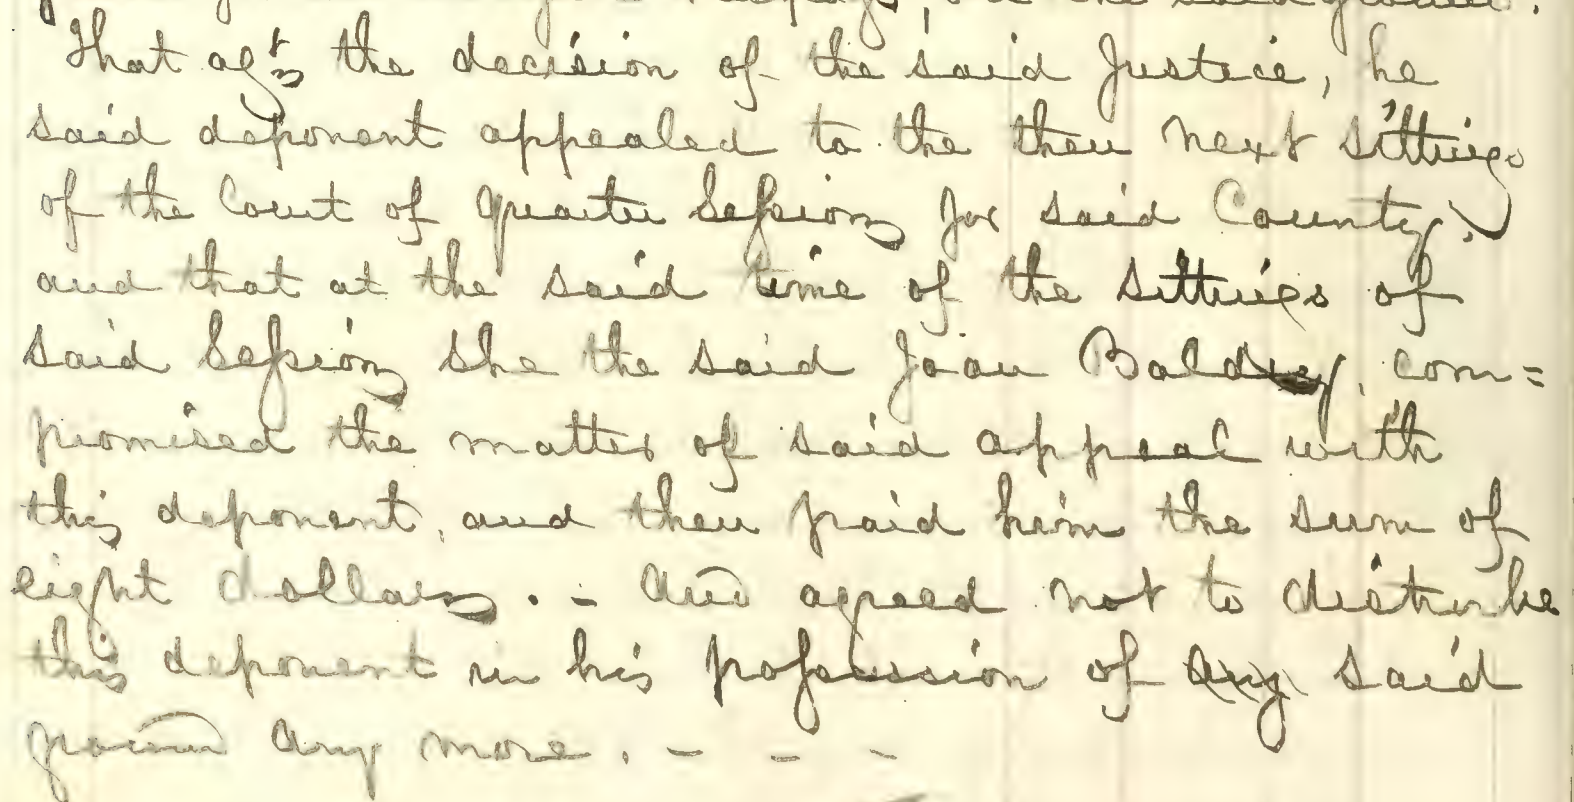 the said ground.
That agst the decision of the said Justice, he
said deponent appealed to the then next sittings
of the Court of quarter Sessions for said County,
and that at the said time of the sittings of
said Sessions she the said Joan Baldry, com=
promised the matter of said appeal with
this deponent, and then paid him the sum of
eight dollars. - and agreed not to disturbe
this deponent in his possession of any said
ground any more. - - -